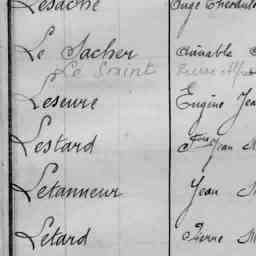 Lesache Ange Theodule
Le Sacher Aimable
Le Saint Pierre Alfr
Leseure Eugène Jea
Lestard Jean M
Letanneur Jean M
Letard Pierre M